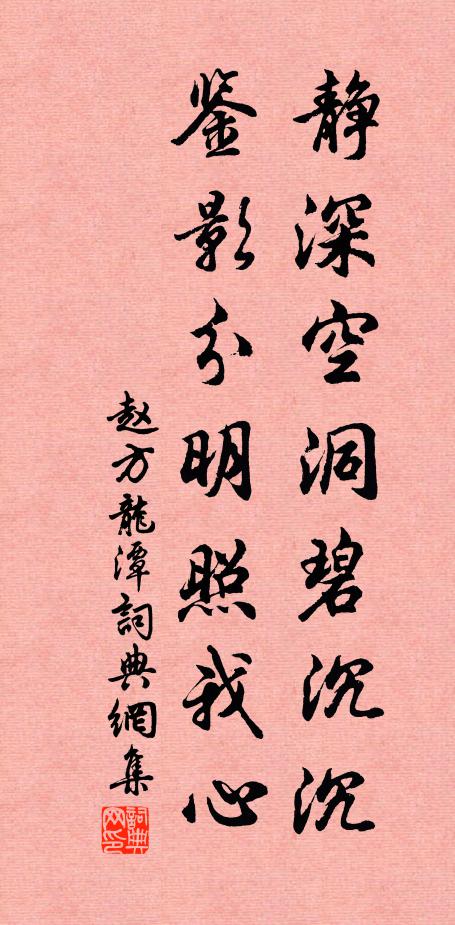 静深空洞碧沉沉
鉴影分明照我心
赵方龍潭詞典網集
詞典网印